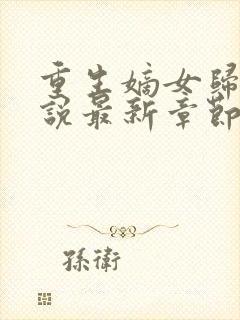 重生嫡女歸
說最新章節
孫衛